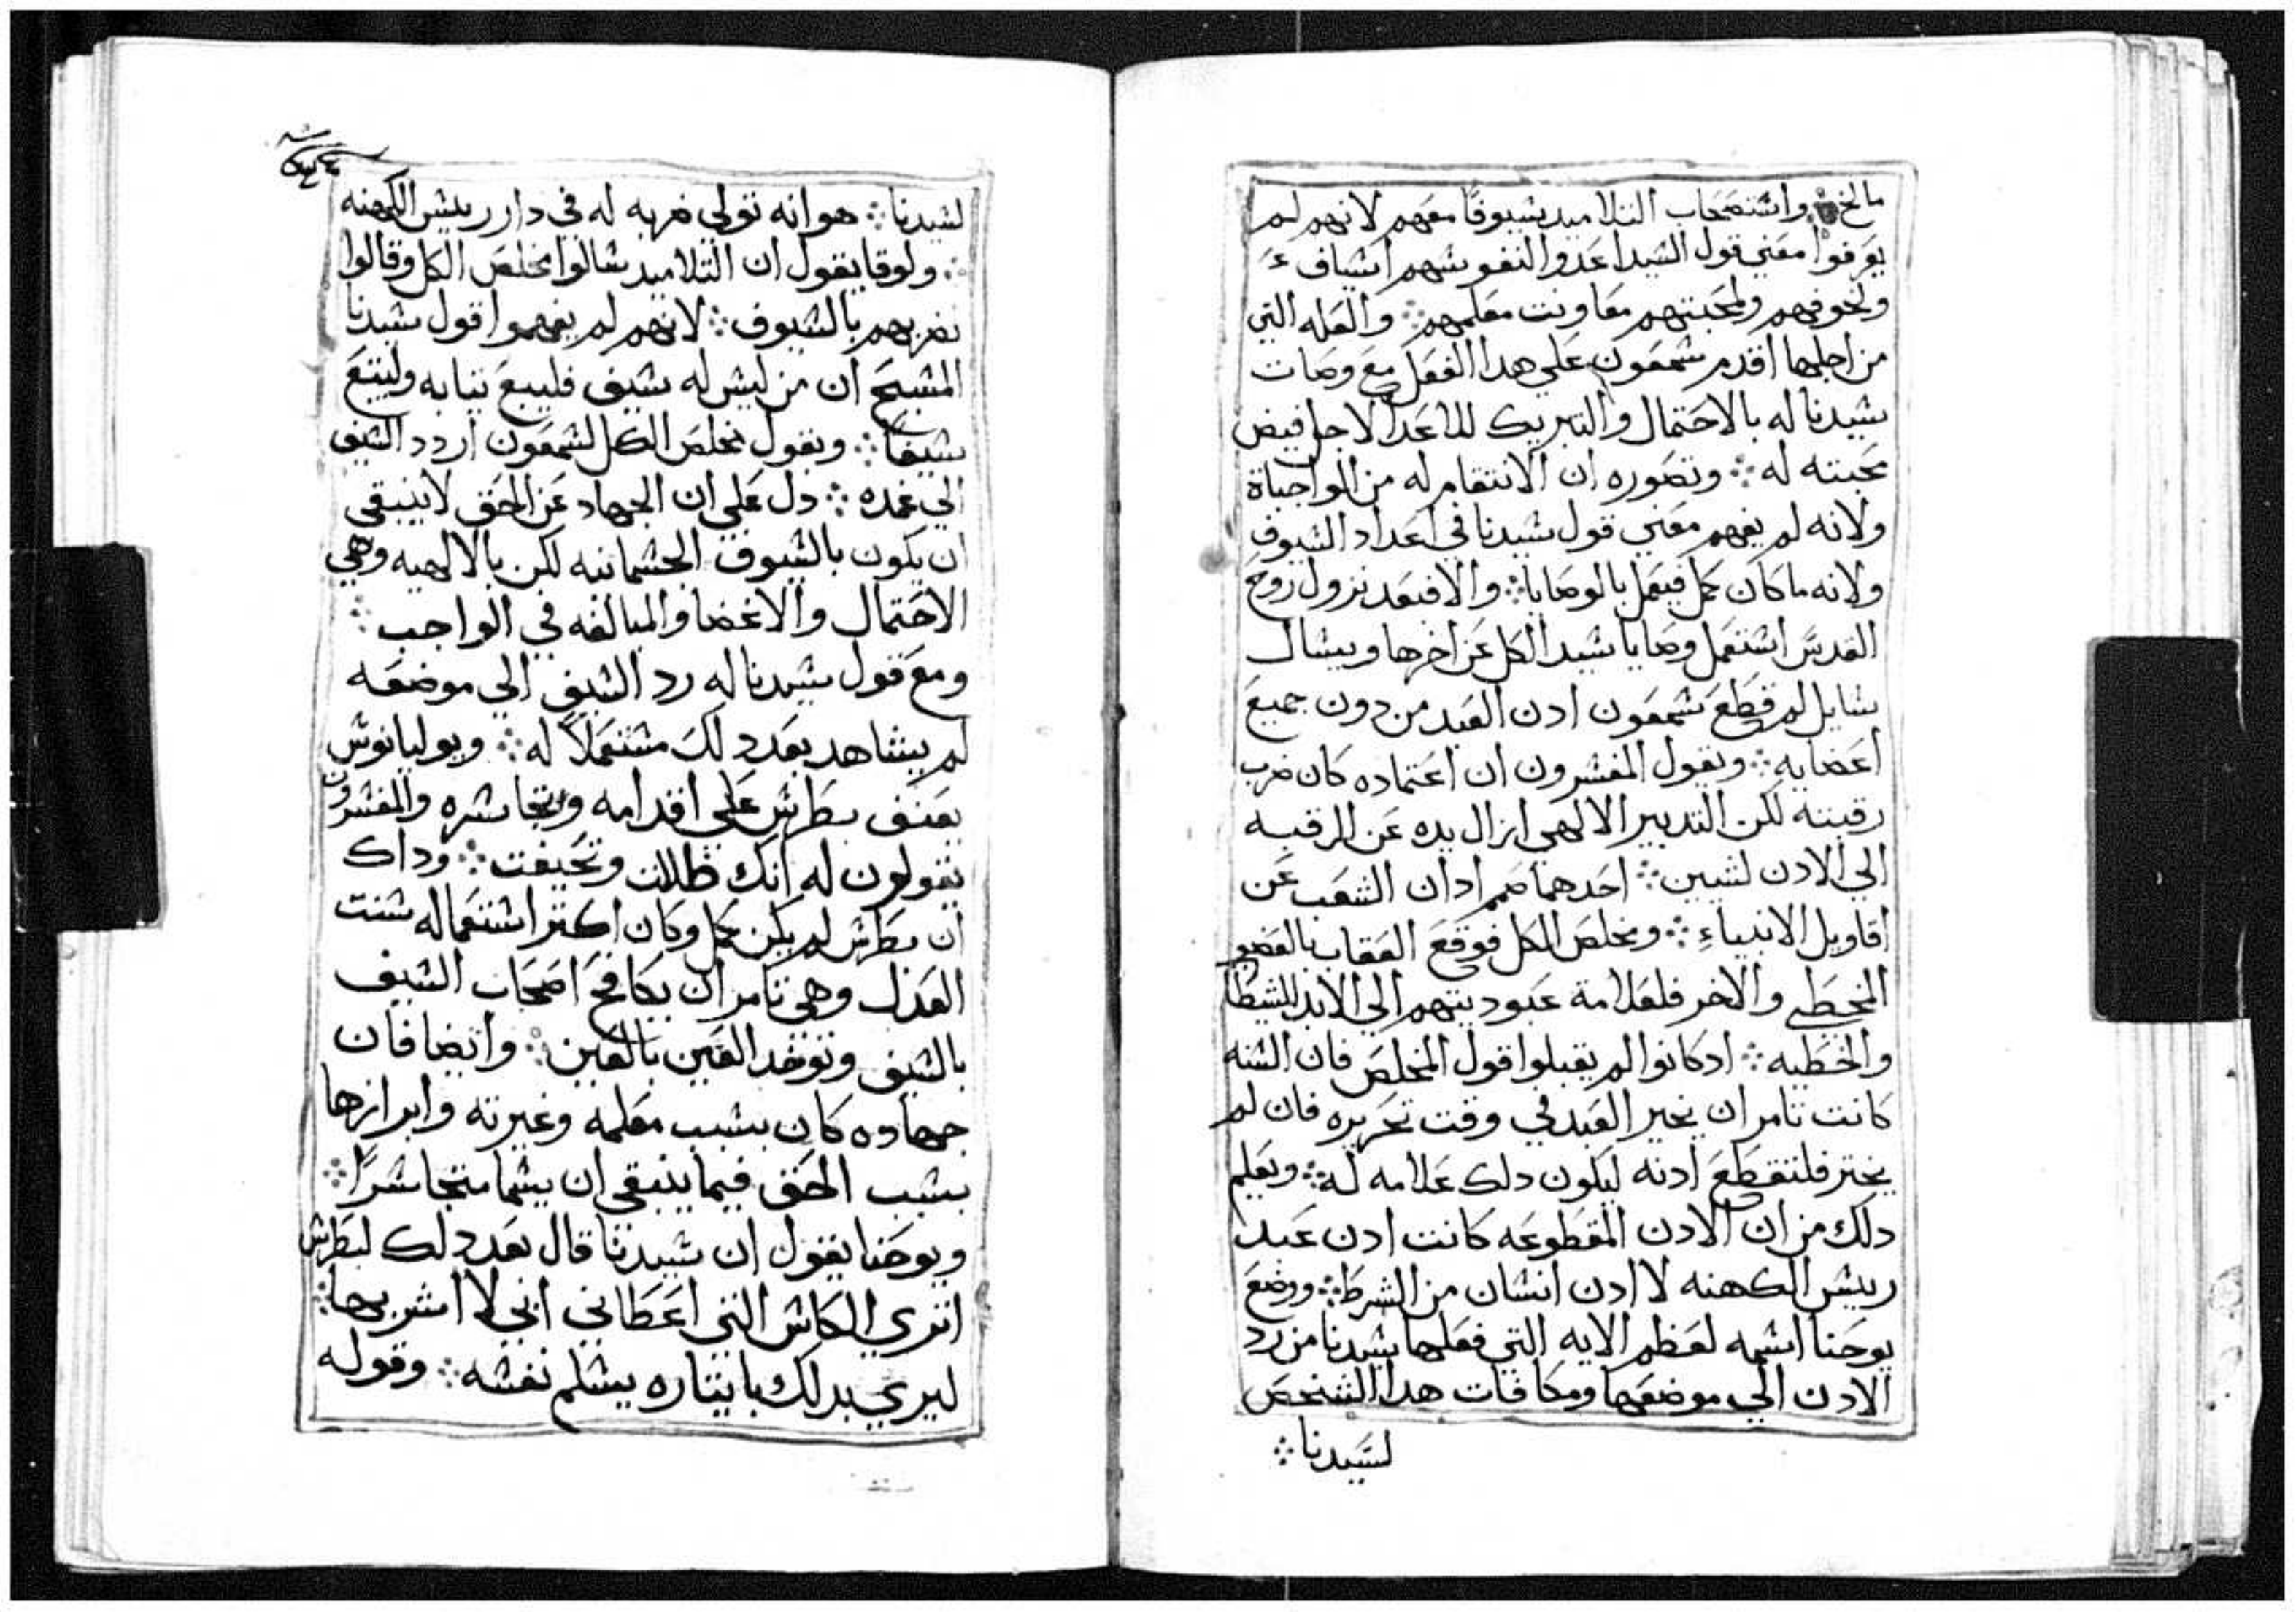 مالخ ⁘ واشتصحاب التلاميد بشيوفا معهم لانهم لم
يعرفوا معني قول الشيد اعدوا لنفوشهم اشياف
ولخوفهم ولمحبتهم معاونت معلمهم ⁘ والعله التي
من اجلها اقدم شمعون علي هدا الفعل مع وصات
شيدنا له بالاحتمال والتبريك للاعدا لاجل فيض
محبته له ⁘ وتصوره ان الانتقام له من الواجباة
ولانه لم يفهم معني قول شيدنا في اعداد الشيوف
ولانه ما كان كمل فيعمل بالوصايا ⁘ والا فبعد نزول روح
القدش اشتعمل وصايا شيد الكل عن اخرها ويشال
شايل لم قطع شمعون ادن العبد من دون جميع
اعضايه ⁘ ونقول المفشرون ان اعتماده كان ضرب
رقبته لكن التدبير الالهي ازال يده عن الرقبه
الي الادن لشبين ⁘ احدهما صمم ادان الشعب عن
اقاويل الانبياء ⁘ ومخلص الكل فوقع العقاب بالعضو
المخطي والاخر فلعلامة عبوديتهم الي الابد للشيطا
والخطيه ⁘ ادكانوا لم يقبلوا قول المخلص فان الشنه
كانت تامر ان يخير العبد في وقت تحريره فان لم
يختر فلتقطع ادنه ليكون دلك علامه له ⁘ ويعلم
دلك من ان الادن المقطوعه كانت ادن عبد
رييش الكهنه لا ادن انشان من الشرط ⁘ ووضع
يوحنا اشمه لعظم الايه التي فعلها شيدنا من رد
الادن الي موضعها ومكافات هدا الشخص
لشيدنا ⁘
لشيدنا ⁘ هو انه تولي ضربه له في دار رييش الكهنه
⁘ ولوقا يقول ان التلاميد شالوا مخلص الكل وقالوا
نضربهم بالشيوف ⁘ لانهم لم يفهموا قول شيدنا
المشيح ان من ليش له شيف فليبع تيابه وليبتع
شيفا ⁘ ونقول مخلص الكل لشمعون اردد الشيف
الي غمده ⁘ دل علي ان الجهاد عن الحق لا ينبقي
ان يكون بالشيوف الجشمانيه لكن بالالهيه وهي
الاحتمال والاغضا والمبالغه في الواجب ⁘
ومع قول شيدنا له رد الشيف الي موضعه
لم يشاهد بعد دلك مشتعملا له ⁘ ويوليانوش
يعنف بطرش علي اقدامه وتجاشره والمفشرون
يقولون له انك ظللت وتحيفت ⁘ وداك
ان بطرش لم يكن كمل وكان اكتر اشتعماله شنت
العدل وهي تامر ان يكافح اصحاب الشيف
بالشيف وتوخد العين بالعين ⁘ وايضا فان
جهاده كان بشبب معلمه وغيرته وابرازها
بشبب الحق فيما ينبقي ان يشما متجاشرا ⁘
ويوحنا يقول ان شيدنا قال بعد دلك لبطرش
اتري الكاش التي اعطاني ابي لا اشربها ⁘
ليري بدلك بايتاره يشلم نفشه ⁘ وقوله